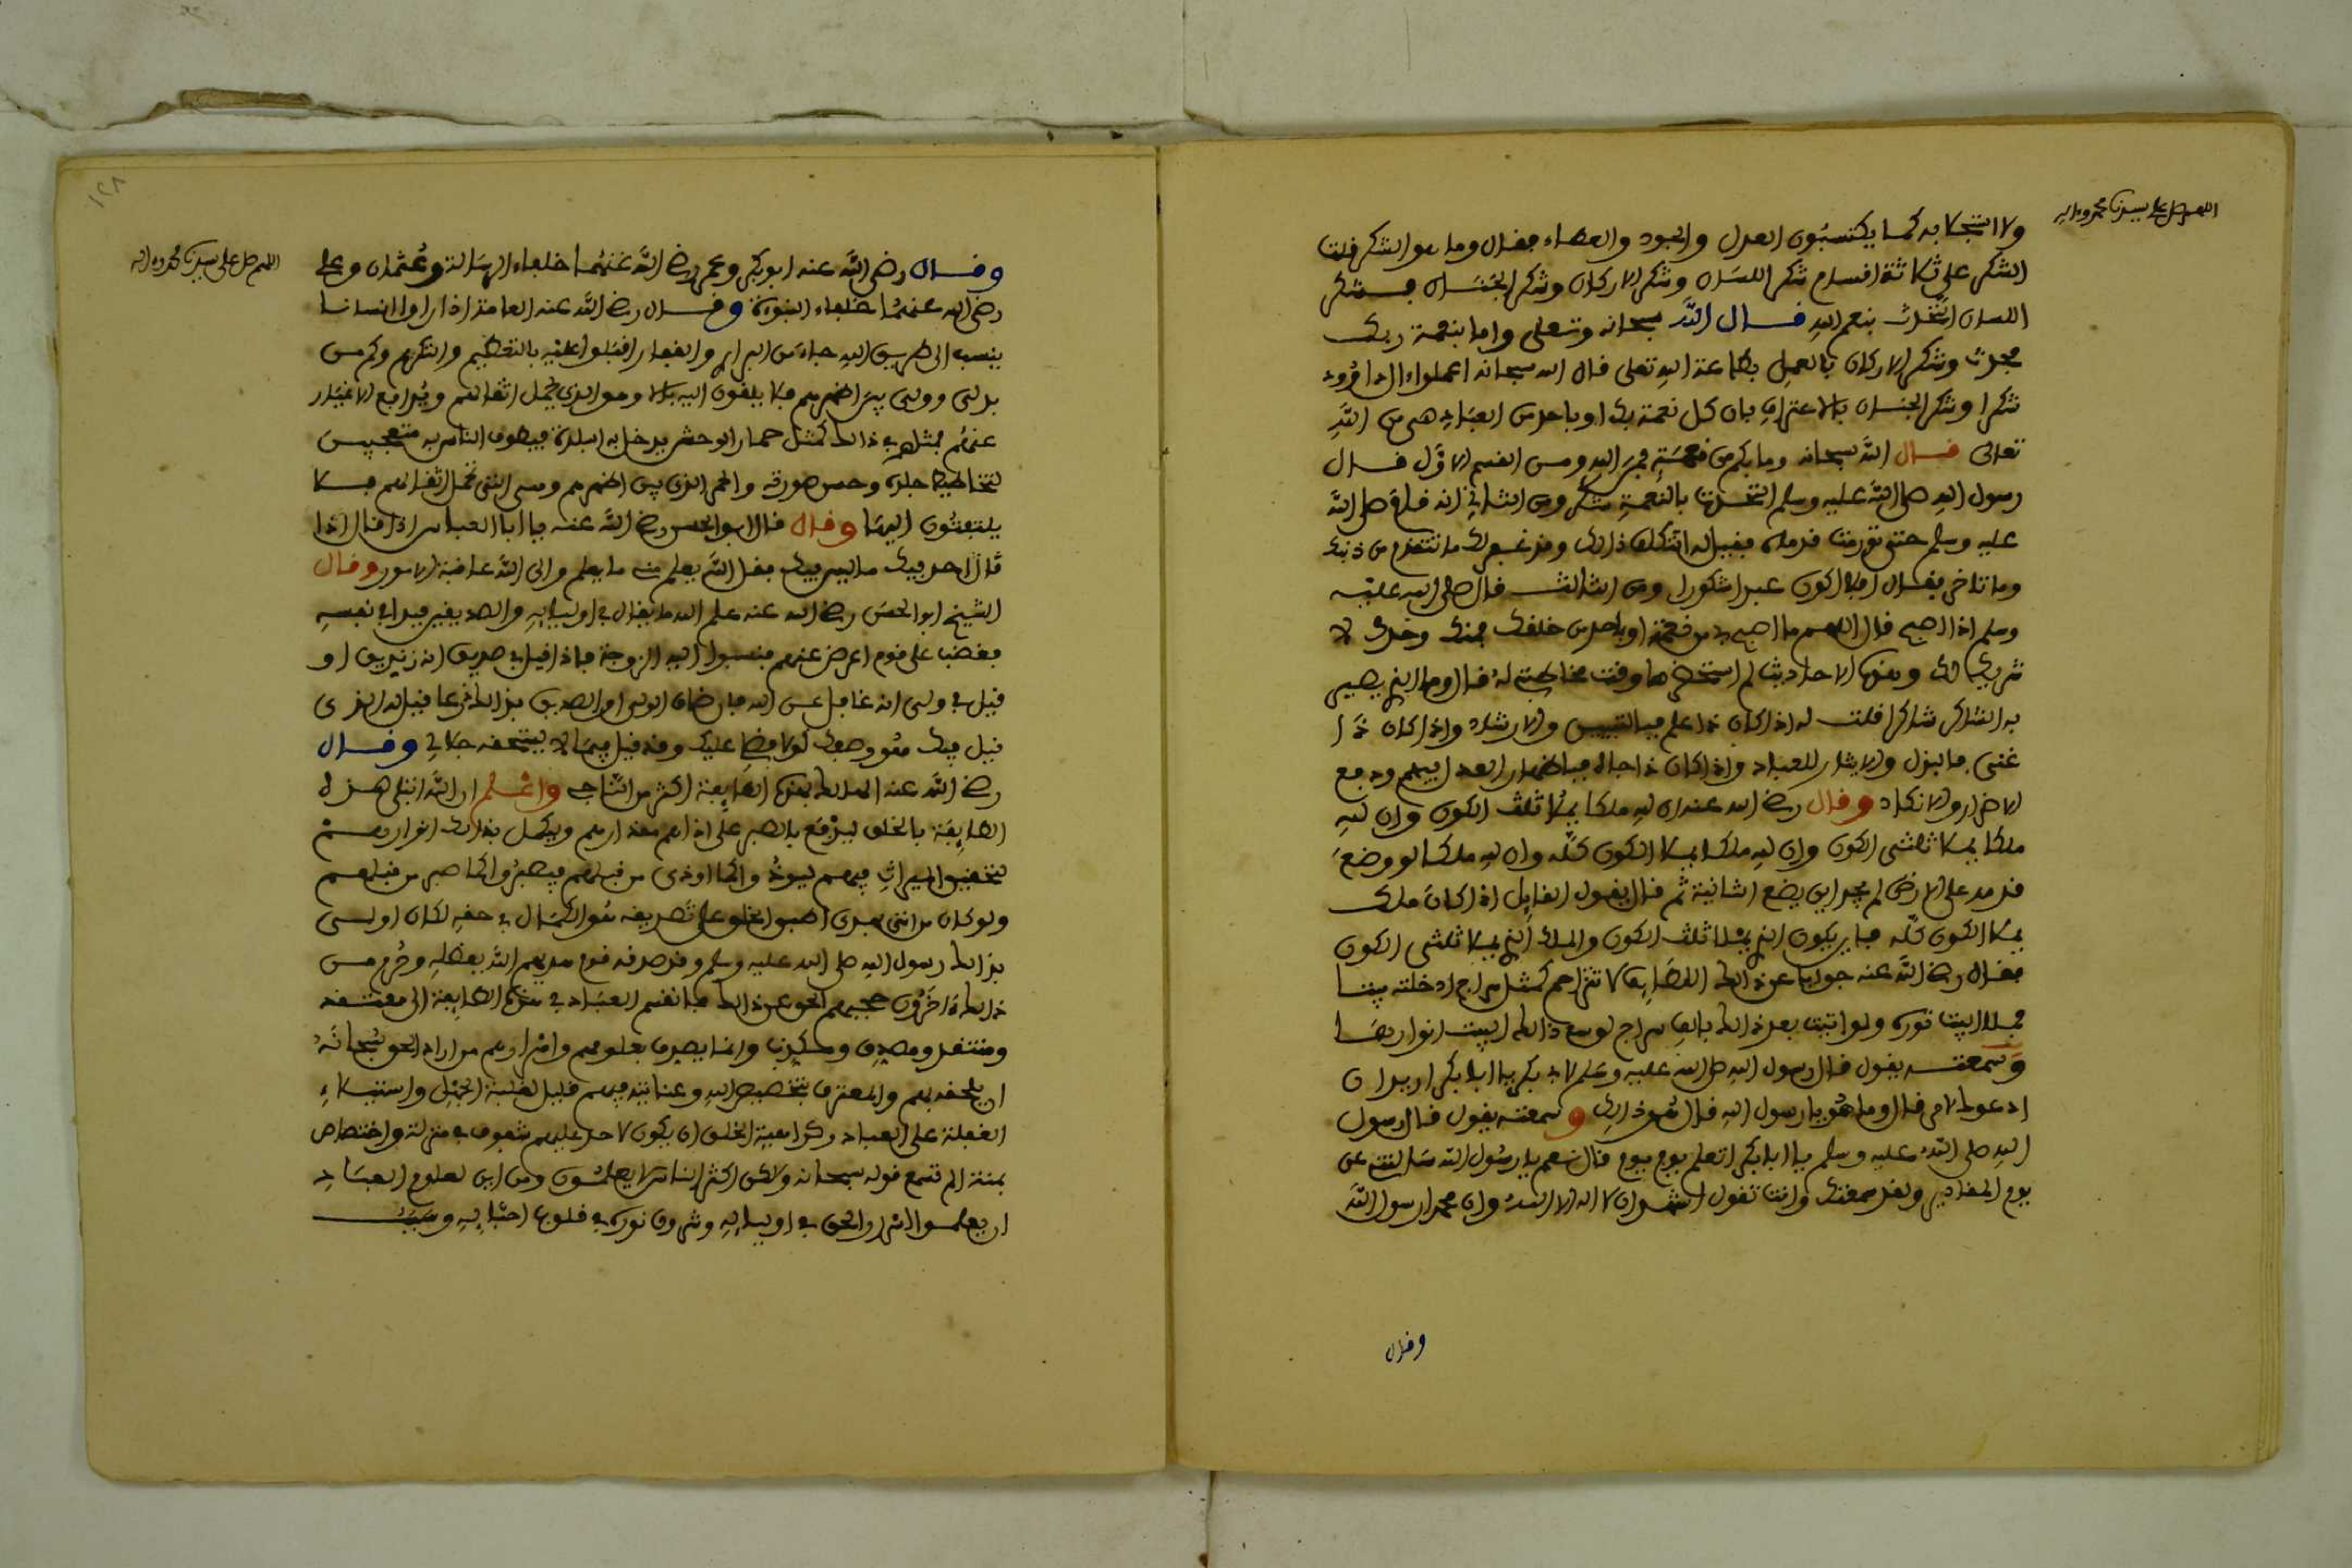 اللهم صل على سيدنا محمد وءاله
ولا انتجابه كما يكتسبون العدل والجود والعطاء فقال وما هو الشكر قلت
الشكر على ثلاثة اقسام شكر اللسان وشكر الاركان وشكر الجنان فشكر
اللسان التحدث بنعم الله قال الله سبحانه وتعلى واما بنعمة ربك
فحدث وشكر الاركان بالعمل بطاعة الله تعلى قال الله سبحانه اعملوا ءال داوود
شكرا وشكر الجنان بالاعتراف بان كل نعمة بك او باحد من العباد هى من الله
تعالى قال الله سبحانه وما بكم من نعمة فمن الله ومن القسم الاول قال
رسول الله صلى الله عليه وسلم التحدث بالنعمة شكر ومن الثانى انه قام صلى الله
عليه وسلم حتى تورمت قدماه فقيل له اتتكلف ذلك وقد غفر لك ما تقدم من ذنبك
وما تاخر فقال افلا اكون عبدا شكورا ومن الثالث قال صلى الله عليه
وسلم اذا اصبح قال اللهم ما اصبح بى من نعمة او باحد من خلقك فمنك وحدك لا
شريك لك وهذه الاحاديث لم استحضرها وقت مخاطبته له قال وما الذى يصير
به الشاكر شاكرا قلت له اذا كان ذا علم فبالتبيين والارشاد واذا كان ذا
غنى فبالبذل والايثار للعباد واذا كان ذا جاه فباظهار العدل فيهم ودفع
الاضرار والانكاد وقال رضى الله عنه ان لله ملكا يملا ثلث الكون وان لله
ملكا يملا ثلثى الكون وان لله ملكا يملا الكون كله وان لله ملكا لو وضع
قدمه على الارض لم يجد اين يضع الثانية ثم قال يقول القايل اذا كان ملك
يملا الكون كله فاين يكون الذى يملا ثلث الكون والملك الذى يملا ثلثى الكون
فقال رضى الله عنه جوابا عن ذلك اللطايف لا تتزاحم كمثل سراج ادخلته بيتا
فملا البيت نوره ولو اتيت بعد ذلك بالف سراج لوسع ذلك البيت انوارها
وسمعته يقول قال رسول الله صلى الله عليه وسلم لابى بكر يا ابا بكر اريد ان
ادعوك لامر قال وما هو يا رسول الله قال هو ذاك وسمعته يقول قال رسول
الله صلى الله عليه وسلم يا ابا بكر اتعلم يوم يوم قال نعم يا رسول الله سالتنى عن
يوم المقادير ولقد سمعتك وانت تقول اشهد ان لا اله الا الله وان محمدا رسول الله
وقال
اللهم صل على سيدنا محمد وءاله
١٢٨
وقال رضى الله عنه ابو بكر وعمر رضى الله عنهما خلفاء الرسالة وعثمان وعلى
رضى الله عنهما خلفاء النبوءة وقال رضى الله عنه العامة اذا راوا انسانا
ينسب الى طريق الله جاء من البرارى والقفار اقبلوا عليه بالتعظيم والتكريم وكم من
بدل وولى بين اظهرهم فلا يلقون اليه بالا وهو الذى يحمل اثقالهم ويدافع الاغيار
عنهم فمثلهم فى ذلك كمثل حمار الوحش يدخل به البلدة فيطوف الناس به متعجبين
لتخاطيط جلده وحسن صورته والحمر الذى بين اظهرهم وهى التى تحمل اثقالهم فلا
يلتفتون اليها وقال قال ابو الحسن رضى الله عنه يا ابا العباس اذا قال اذا
قال احد فيك ما ليس فيك فقل الله يعلم منى ما يعلم والى الله عاقبة الامور وقال
الشيخ ابو الحسن رضى الله عنه علم الله ما يقال فى اوليايه والصديقين فبدا فى نفسه
فغضب على قوم اعرض عنهم فنسبوا اليه الزوجة فاذا قيل فى صديق انه زنديق او
قيل فى ولى انه غافل عن الله فان ضاق الولى او الصديق بذلك ذرعا قيل له الذى
قيل فيك هو وصفك لولا فضلى عليك وقد قيل فيما لا يستحقه جلالى وقال
رضى الله عنه الهالك بهذه الطايفة اكثر من الناجى واعلم ان الله ابتلى هذه
الطايفة بالخلق ليرفع بالصبر على اذاهم مقدارهم ويكمل بذلك انوارهم
لتحقيق الميراث فيهم ليوذوا كما اوذى من قبلهم فيصبروا كما صبر من قبلهم
ولو كان من اتى بهدى اطبق الخلق على تصديقه هو الكمال فى حقه لكان اولى
بذلك رسول الله صلى الله عليه وسلم وقد صدقه قوم هديهم الله بفضله وحرم من
ذلك ءاخرون حجبهم الحق عن ذلك فانقسم العباد فى هذه الطايفة الى معتقد
ومنتقد ومصدق ومكذب وانما يصدق بعلومهم واسرارهم من اراد الحق سبحانه
ان يلحقه بهم والمعترف بتخصيص الله وعنايته فيهم قليل لغلبة الجهل واستيلاء
الغفلة على العباد وكراهية الخلق ان يكون لاحد عليهم شفوف فى منزلة واختصاص
بمنة الم تسمع قوله سبحانه ولكن اكثر الناس لا يعلمون ومن اين لعلوم العباد
ان يعلموا اسرار الحق فى اوليايه وشروق نوره فى قلوب احبايه وسبب